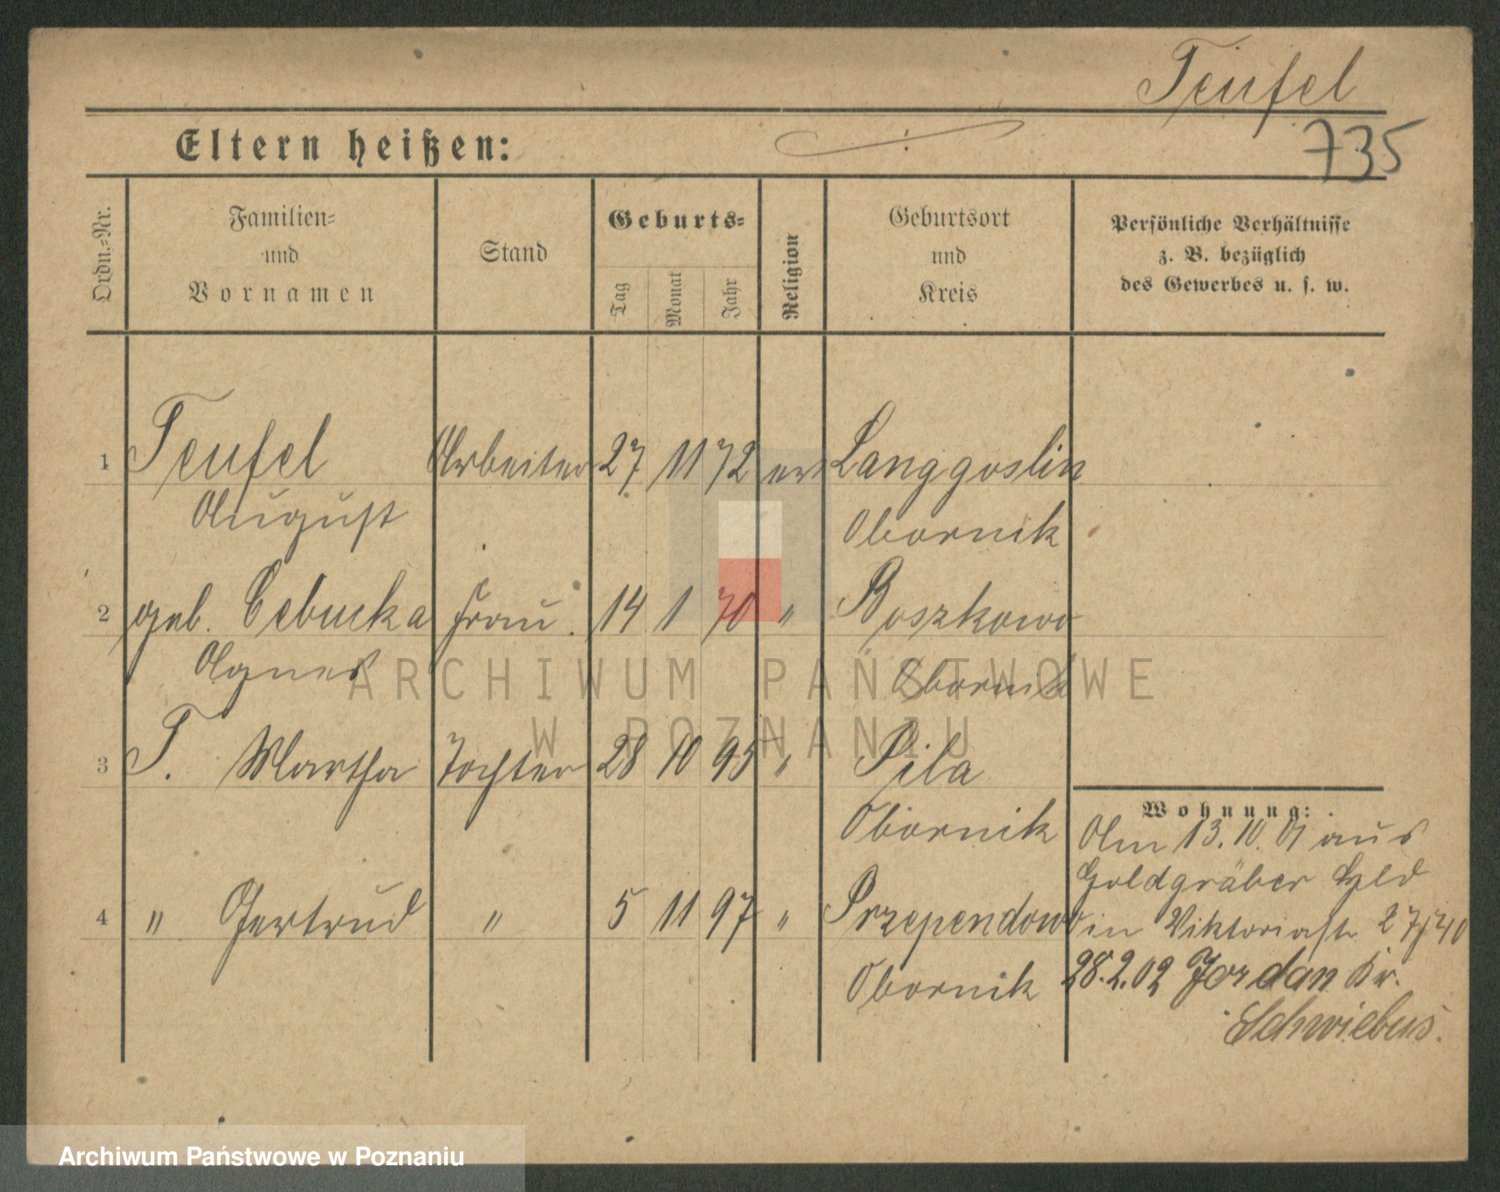 Teufel
735
Eltern heißen:
Ordn.-Nr.
Familien-
und
Vornamen
Stand
Geburts-
Tag
Monat
Jahr
Religion
Geburtsort
und
Kreis
Persönliche Verhältnisse
z. B. bezüglich
des Gewerbes u. s. w.
1 Teufel Arbeiter 27 11 72 Langgoslin
August Obornik
2 geb. Cebucka Frau. 14 1 70 " Boszkowo
Agnes Obornik
ARCHIWUM PAŃSTWOWE
W POZNANIU
3 T. Martha Tochter 28 10 95 " Pila
Obornik
4 " Gertrud " 5 11 97 " Przependowo
Obornik
Wohnung:
Am 13.10.01 aus
Goldgräber
in Viktoriastr 27/40
28.2.02 Jordan Kr.
Schwiebus.
Archiwum Państwowe w Poznaniu